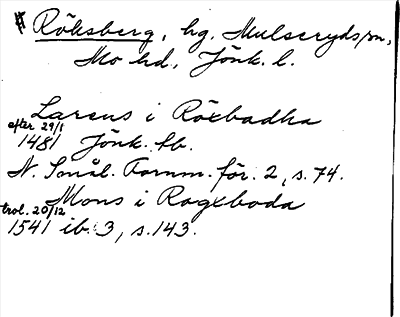 # Röksberg, hg. Mulseryds sn,
Mo hd, Jönk. l.
Larens i Röxbadha
efter 29/1
1481 Jönk. tb.
N. Smål. Fornm. för. 2, s. 74.
Mons i Rogxboda
trol. 20/12
1541 ib. 3, s. 143.